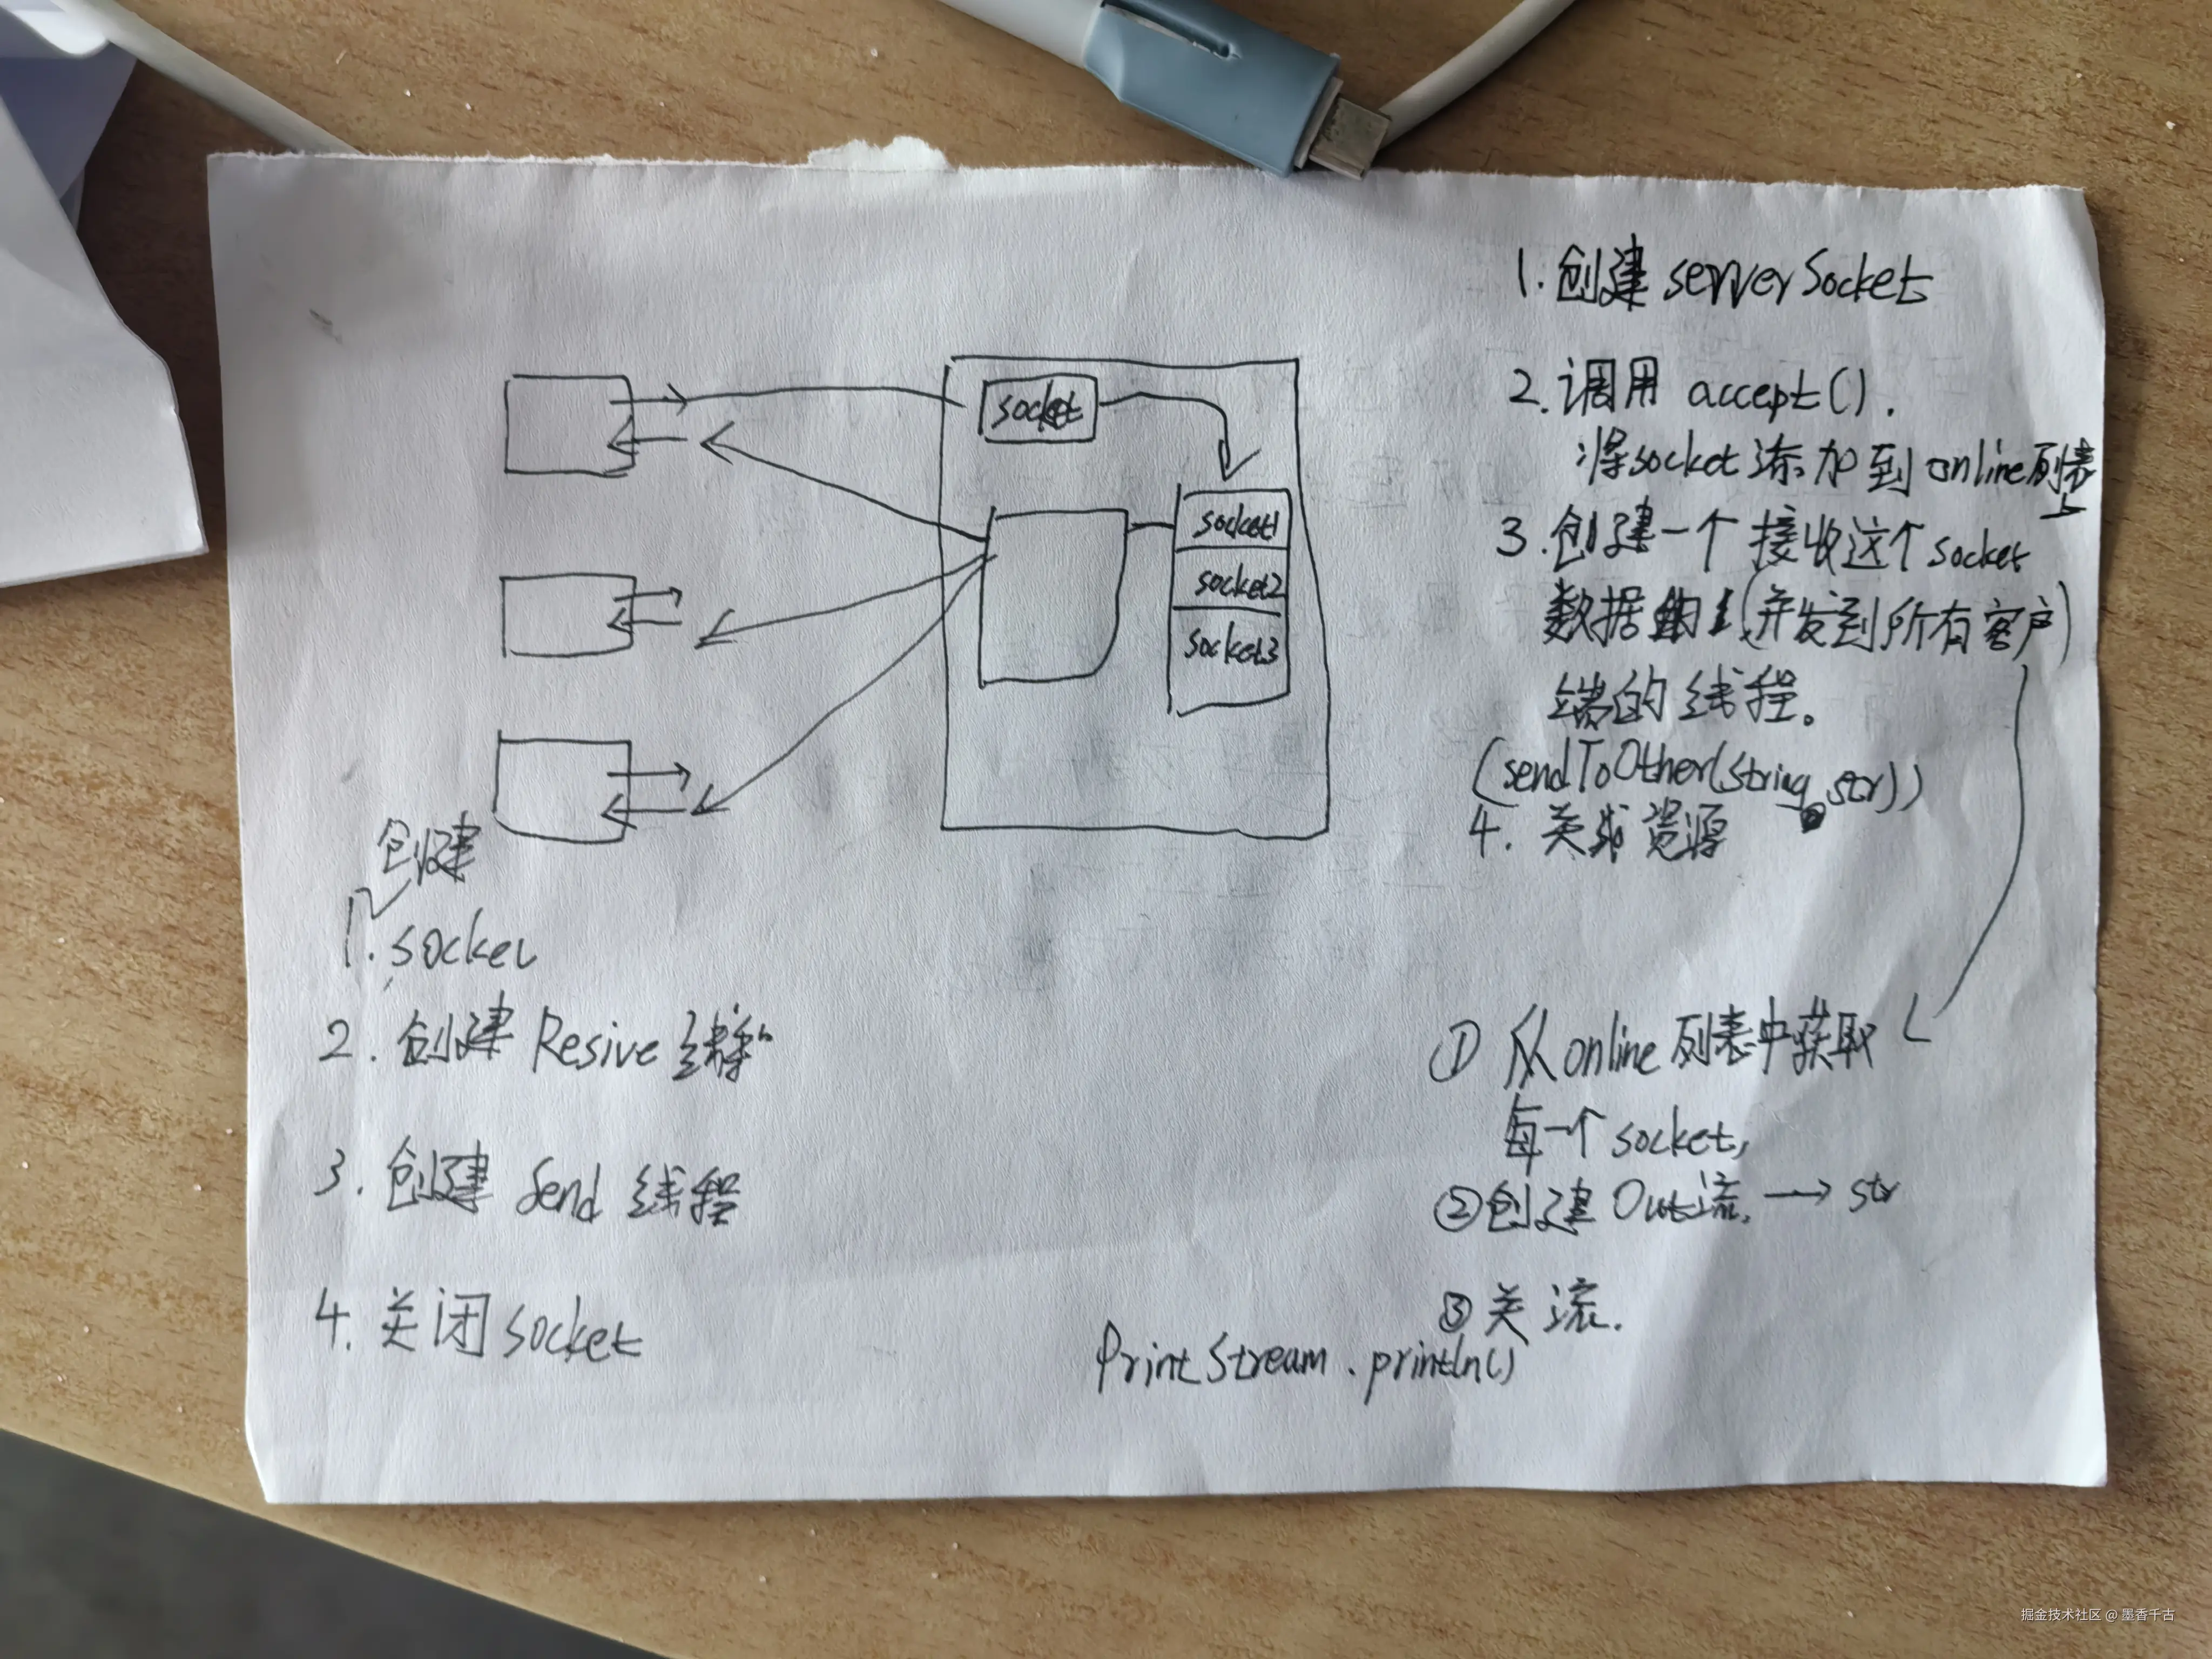 1. 创建 serverSocket
2. 调用 accept().
将socket添加到online列表
上
3. 创建一个接收这个socket
数据的(并发到所有客户)
端的线程。
(sendToOther(String str))
4. 关闭资源
socket
socket1
socket2
socket3
创建
1. socket
2. 创建 Resive 线程
3. 创建 Send 线程
4. 关闭 socket
① 从online列表中获取
每一个socket,
②创建Out流, → str
③关流.
PrintStream.println()
掘金技术社区 @ 墨香千古